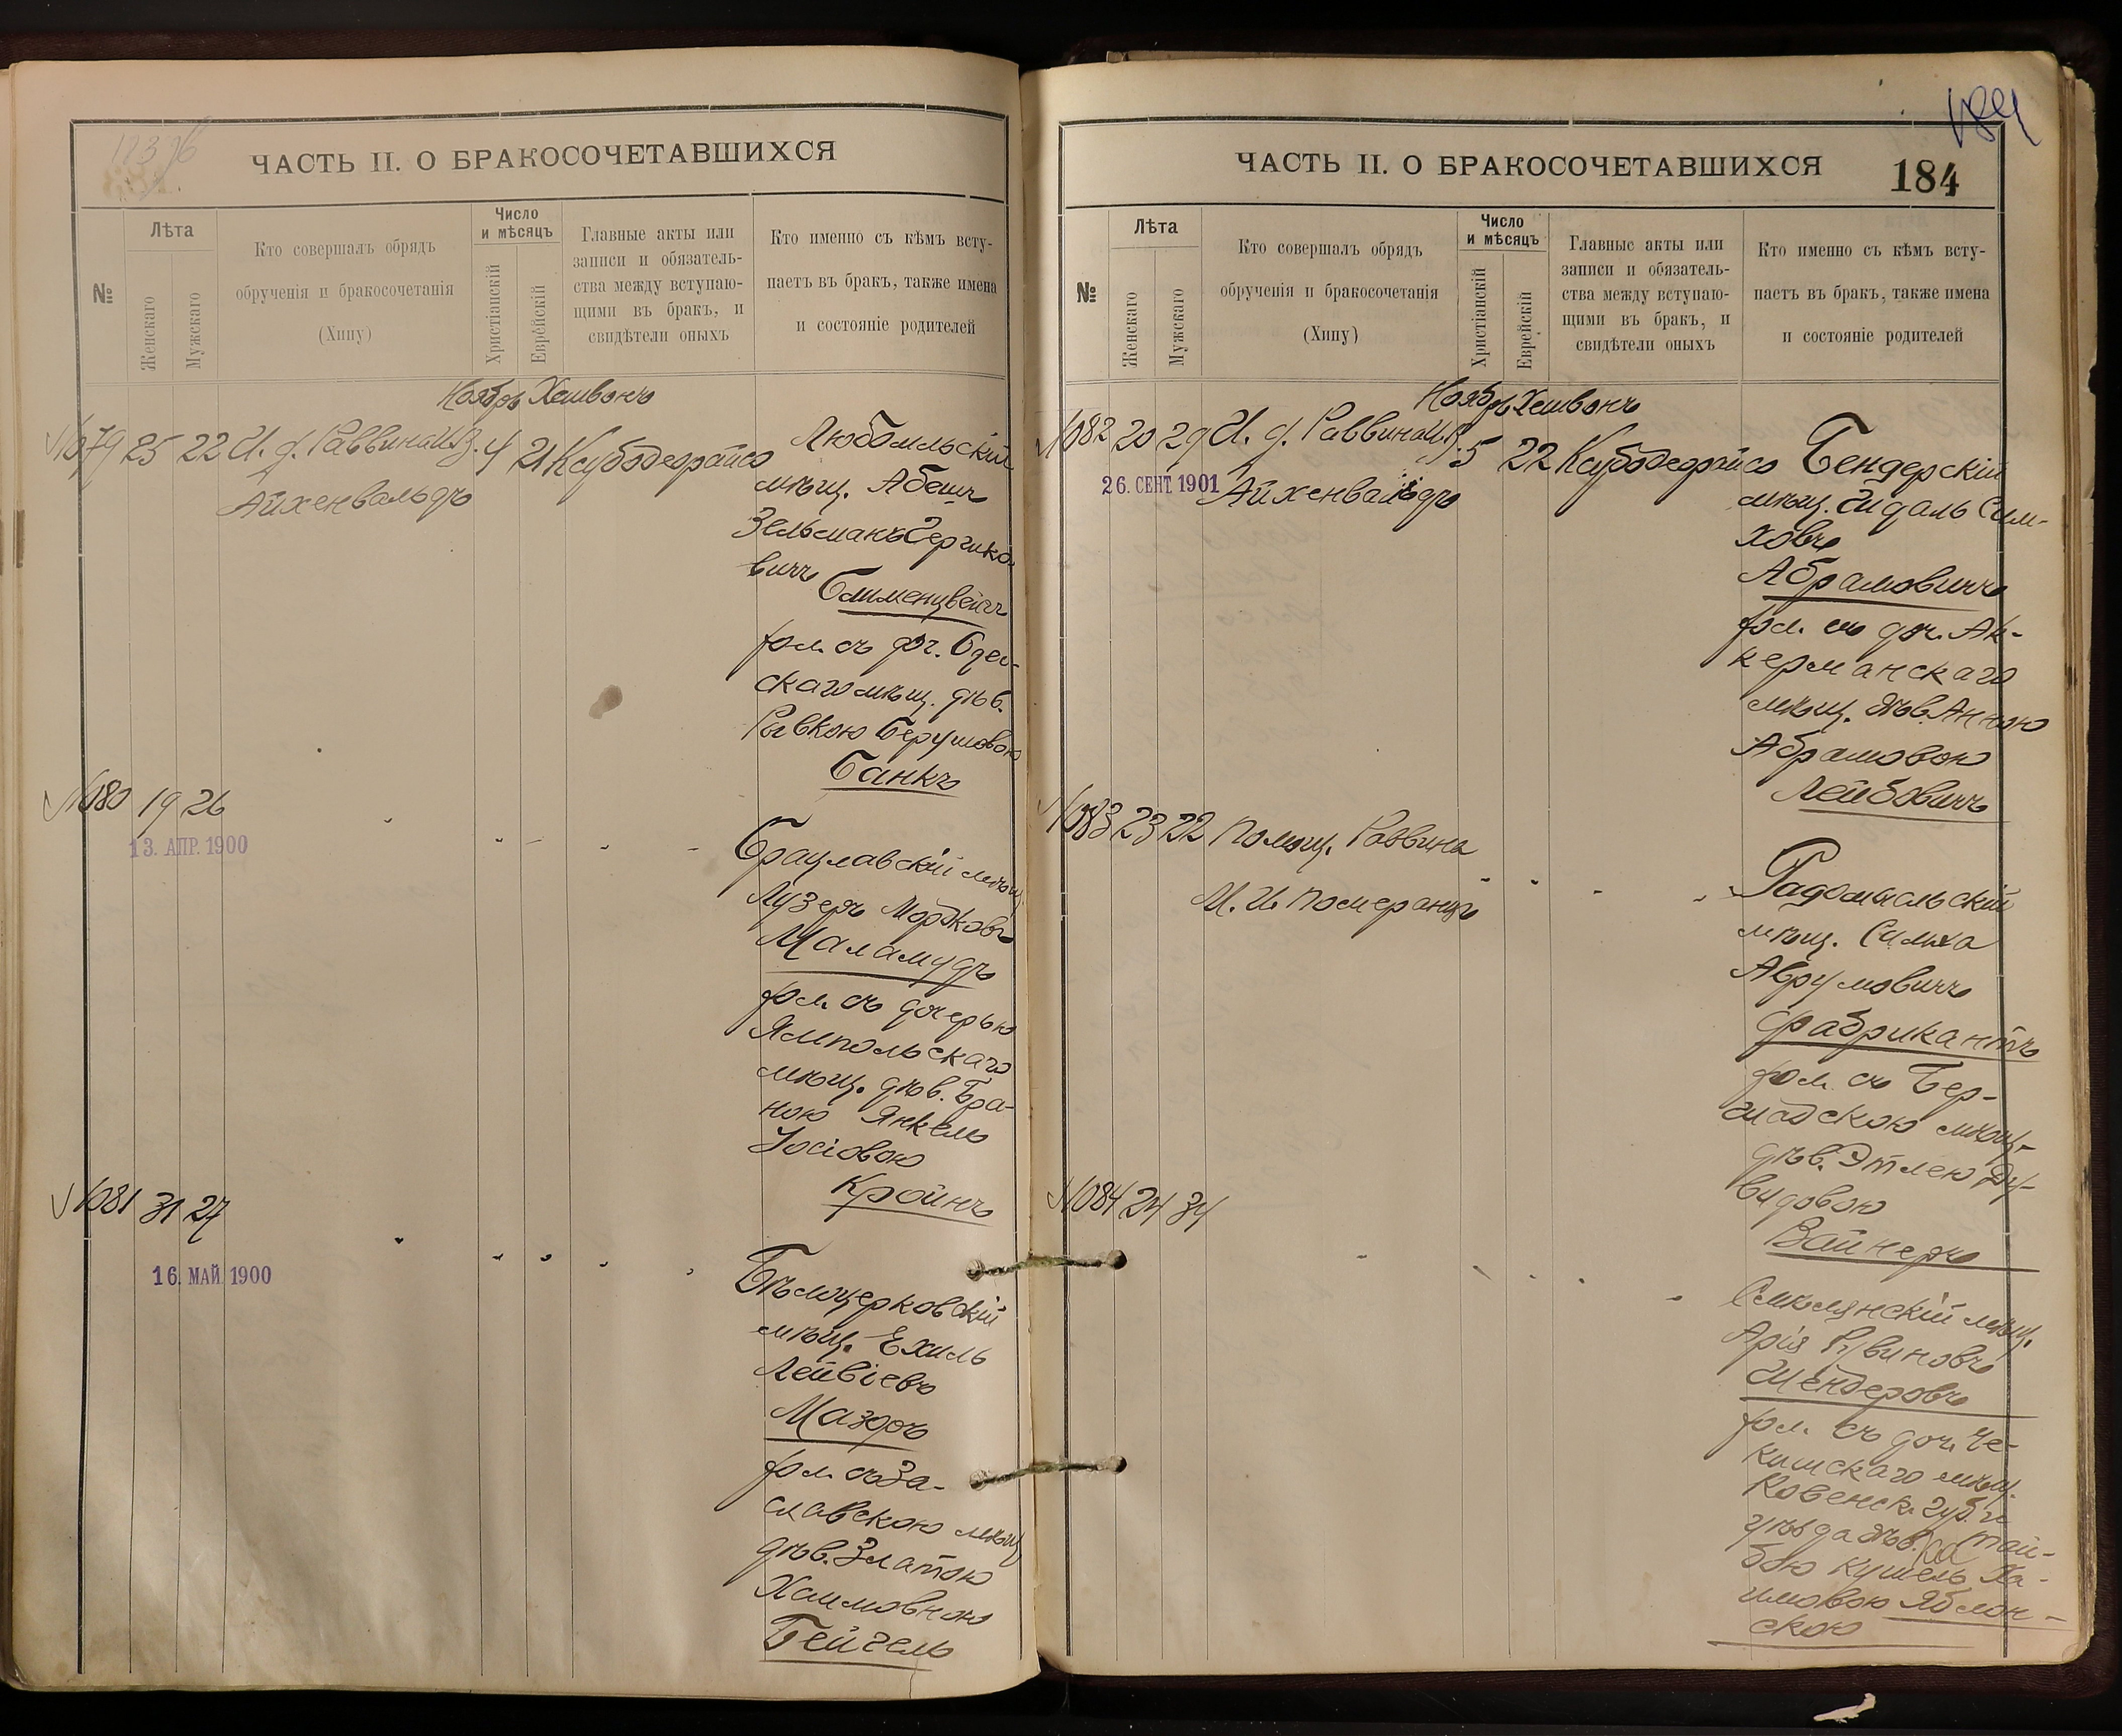 ЧАСТЬ II. О БРАКОСОЧЕТАВШИХСЯ
№
Лѣта
Женскаго
Мужскаго
Кто совершалъ обрядъ
обрученія и бракосочетанія
(Хипу)
Число
и мѣсяцъ
Христіанскій
Еврейскій
Главные акты или
записи и обязатель-
ства между вступаю-
щими въ бракъ, и
свидѣтели оныхъ
Кто именно съ кѣмъ всту-
паетъ въ бракъ, также имена
и состояніе родителей
Ноябрь Хешвонъ
1079 25 22 И. д. Раввина 4 21
Айхенвальдъ
Любомльскій
мѣщ. Абешъ
Зельманъ
вичъ
Блименцвейгъ
съ доч. Одес-
скаго мѣщ. дѣв.
Рывкою Берушовою
Банкъ
1080 19 26
13. АПР. 1900
Брацлавскій мѣщ.
Лузеръ Мордковъ
Маламудъ
съ дочерью
Ямпольскаго
мѣщ. дѣв. Бра-
ною Янкель
Іосіовою
Кройнъ
1081 31 27
16. МАЙ. 1900
Бѣлоцерковскій
мѣщ. Ехиль
Лейвіевъ
Мазоръ
съ За-
славскою мѣщ.
дѣв. Златою
Хаимовною
Бейгель
184
ЧАСТЬ II. О БРАКОСОЧЕТАВШИХСЯ
184
№
Лѣта
Женскаго
Мужскаго
Кто совершалъ обрядъ
обрученія и бракосочетанія
(Хипу)
Число
и мѣсяцъ
Христіанскій
Еврейскій
Главные акты или
записи и обязатель-
ства между вступаю-
щими въ бракъ, и
свидѣтели оныхъ
Кто именно съ кѣмъ всту-
паетъ въ бракъ, также имена
и состояніе родителей
Ноябрь Хешвонъ
1082 20 29 И. д. Раввина 5 22
26. СЕНТ. 1901
Айхенвальдъ
Бендерскій
мѣщ. Гидаль Сим-
ховъ
Абрамовичъ
съ доч. Ак-
керманскаго
мѣщ. дѣв. Анною
Абрамовою
Лейбовичъ
1083 23 22 Помощ. Раввина
И. Померанцъ
Радомысльскій
мѣщ. Симха
Аврумовичъ
Фабрикантъ
съ Бер-
шадскою мѣщ.
дѣв. Этлею Ду-
видовою
Вайнеръ
1084 24 34
Смѣлянскій мѣщ.
Арія Рувиновъ
Шендеровъ
съ доч. Че-
кишскаго мѣщ.
Ковенск. губ. и
уѣзда дѣв. Тай-
бою Кушель Ха-
имовою Яблон-
скою